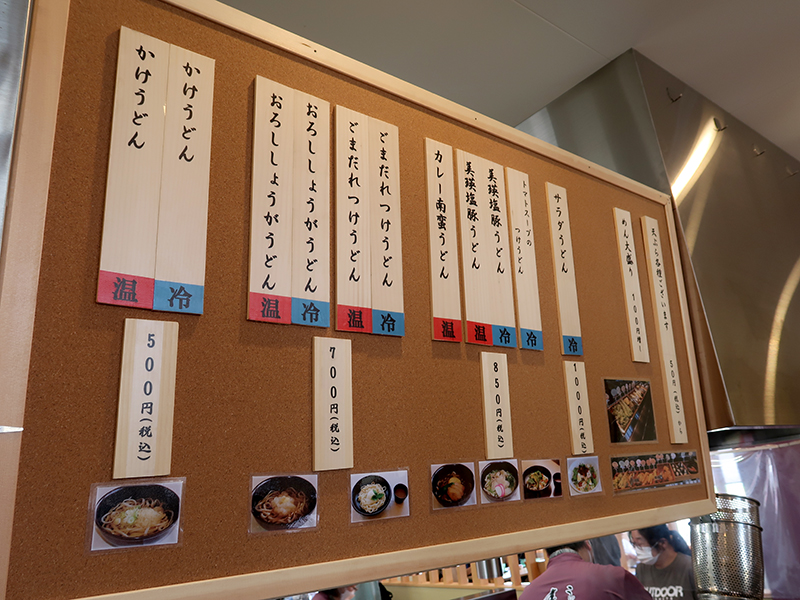 かけうどん
温
かけうどん
冷
500円(税込)
おろししょうがうどん
温
おろししょうがうどん
冷
ごまだれつけうどん
温
ごまだれつけうどん
冷
700円(税込)
カレー南蛮うどん
温
美瑛塩豚うどん
温
美瑛塩豚うどん
冷
トマトスープの
つけうどん
冷
850円(税込)
サラダうどん
冷
1000円(税込)
めん大盛り 100円増!
天ぷら各種ございます 50円(税込)から
OUTDOOR